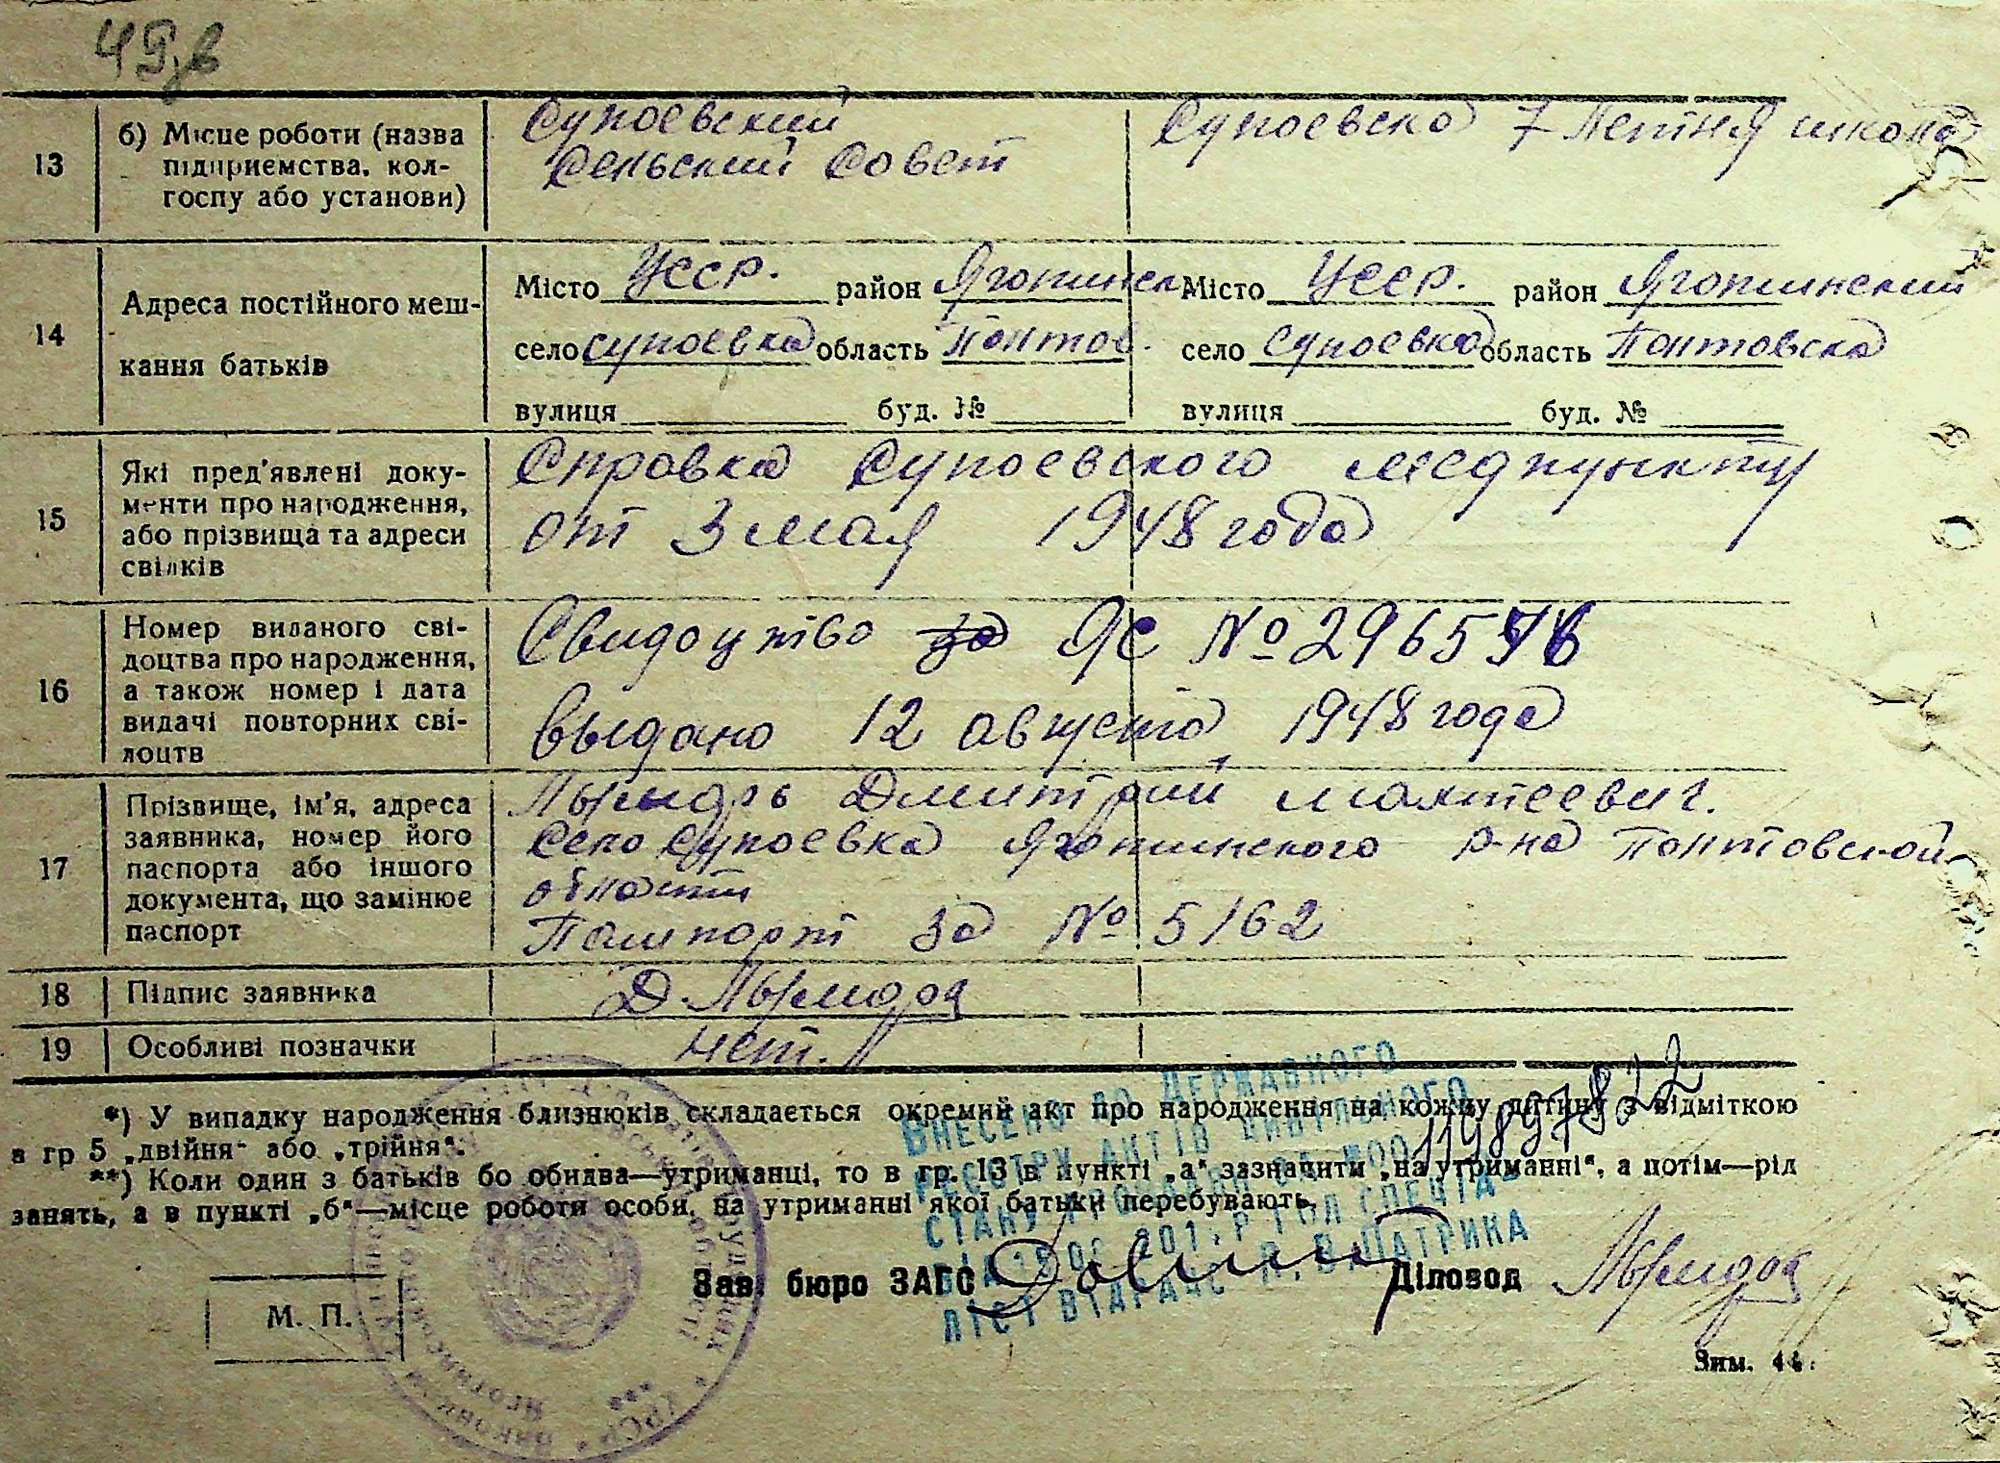 49,в
13
б) Місце роботи (назва
підприємства, кол-
госпу або установи)
Супоевский
Сельский Совет
Супоевска 7 Летня школа
14
Адреса постійного меш-
кання батьків
Місто Усср. район Яготинск.
село Супоевка область Полтов.
вулиця буд. №
Місто Усср. район Яготинский
село Супоевка область Полтовска
вулиця буд. №
15
Які пред'явлені доку-
менти про народження,
або прізвища та адреси
свідків
Справка Супоевского медпункту
от 3 мая 1948 года
16
Номер виданого сві-
доцтва про народження,
а також номер і дата
видачі повторних сві-
доцтв
Свидоцтво за ЯС №
выдано 12 августа 1948 года
17
Прізвище, ім'я, адреса
заявника, номер його
паспорта або іншого
документа, що замінює
паспорт
Дмитрий Мактеевич.
Село Супоевка Яготинского р-на Полтовской
области
Пашпорт за № 5162
18
Підпис заявника
Д.
19
Особливі позначки
нет.
*) У випадку народження близнюків складається окремий акт про народження на кожну дитину з відміткою
в гр 5 „двійня" або „трійня".
**) Коли один з батьків бо обидва—утриманці, то в гр. 13 в пункті „а" зазначити „на утриманні", а потім—рід
занять, а в пункті „б"—місце роботи особи, на утриманні якої батьки перебувають.
ВНЕСЕНО ДО ДЕРЖАВНОГО
РЕЄСТРУ АКТІВ ЦИВІЛЬНОГО
СТАНУ ГРОМАДЯН
М. П.
Зав. бюро ЗАГС
Діловод
Зим. 44.